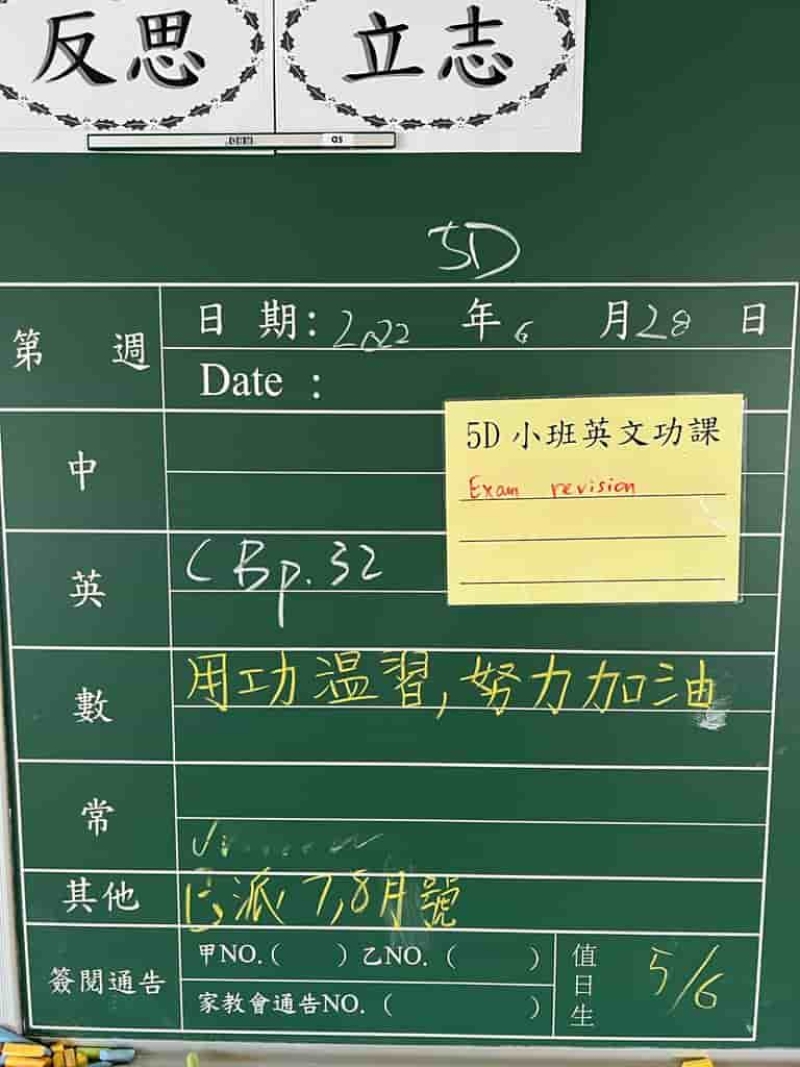 反思
立志
5D
第 週
日 期: 2022 年 6 月 28 日
Date :
5D 小班英文功課
Exam revision
中
英
CBp.32
數
用功温習,努力加油
常
其他
已派7,8月號
簽閱通告
甲NO.( ) 乙NO. ( )
家教會通告NO. ( )
值日生
5/6